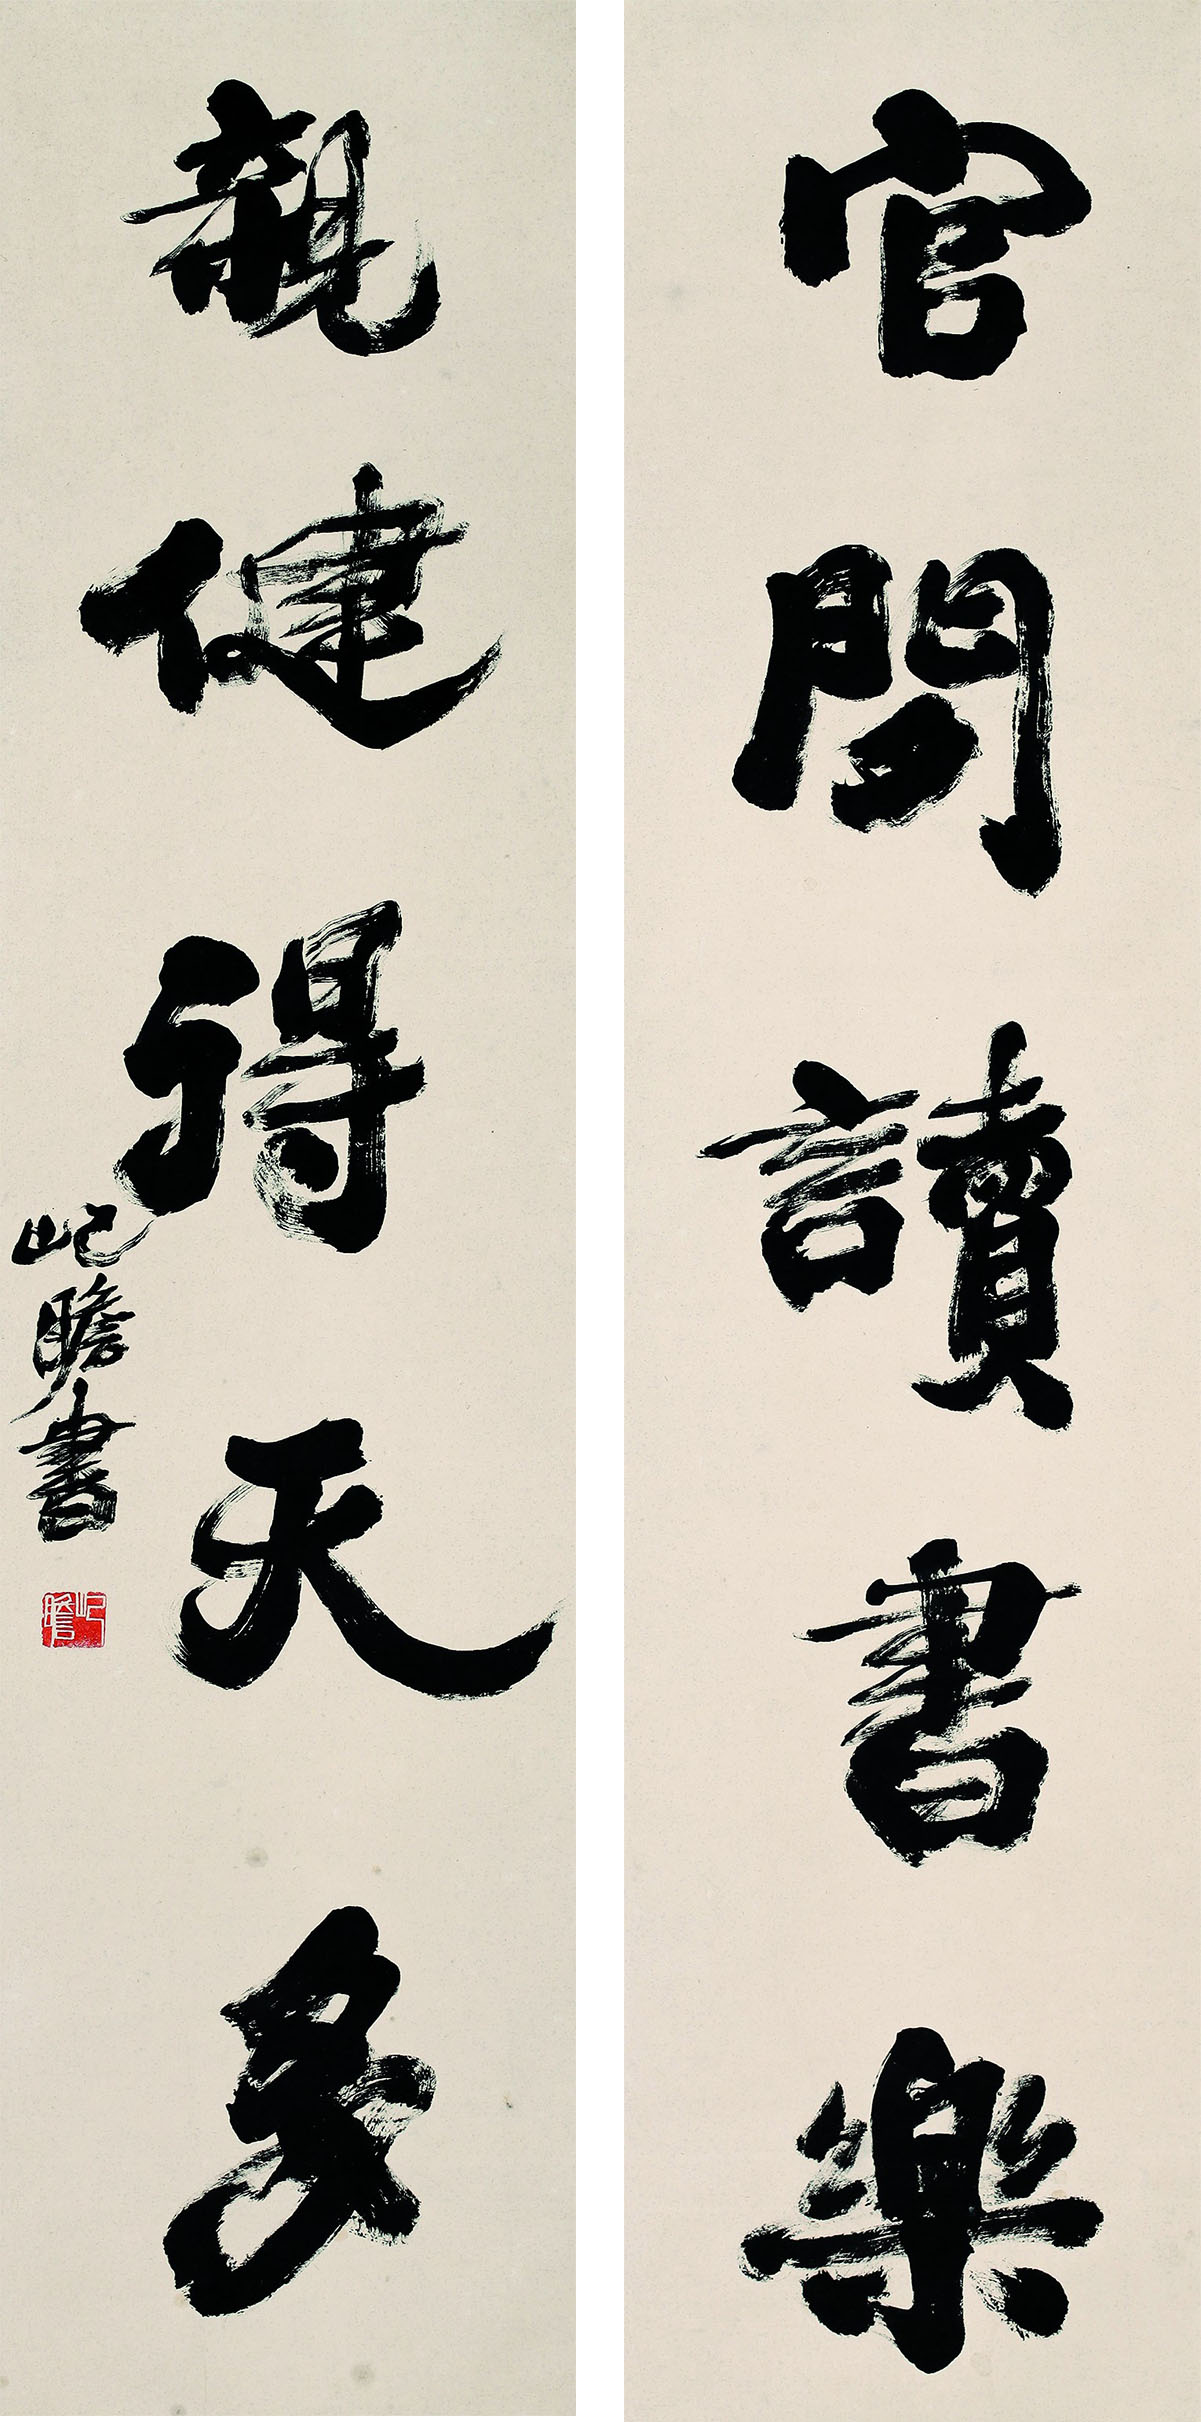 官閒讀書樂
親健得天多
屺瞻書
屺瞻